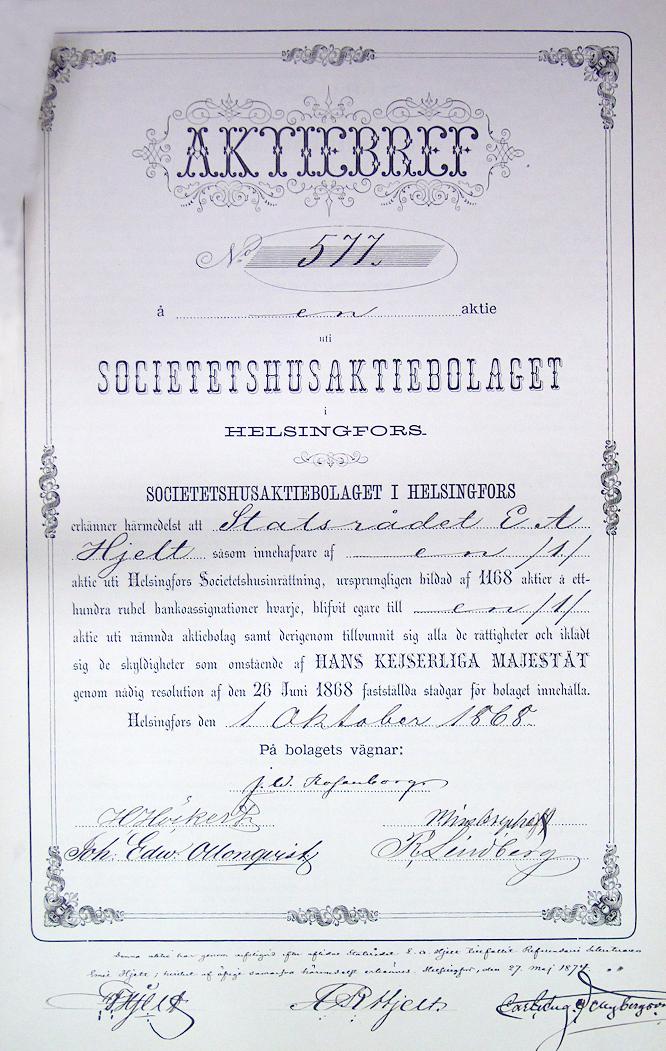 AKTIEBREF
No 577.
å en aktie
uti
SOCIETETSHUSAKTIEBOLAGET
i
HELSINGFORS.
SOCIETETSHUSAKTIEBOLAGET I HELSINGFORS
erkänner härmedelst att Statsrådet E A
Hjelt såsom innehafvare af en /1/
aktie uti Helsingfors Societetshusinrättning, ursprungligen bildad af 1168 aktier à ett-
hundra rubel bankoassignationer hvarje, blifvit egare till en /1/
aktie uti nämnda aktiebolag samt derigenom tillvunnit sig alla de rättigheter och iklädt
sig de skyldigheter som omstående af HANS KEJSERLIGA MAJESTÄT
genom nådig resolution af den 26 Juni 1868 fastställda stadgar för bolaget innehålla.
Helsingfors den 1 Oktober 1868.
På bolagets vägnar:
j. W. Rosenborg
H Höckert
Joh: Edw. Ollonqvist R. Lindberg
Denna aktie har genom efter aflidne Statsrådet E. A. Hjelt tillfallit Referendarie Sekreteraren
Hjelt, af Helsingfors, den 27 Maj 1874.
Hjelt A R Hjelt